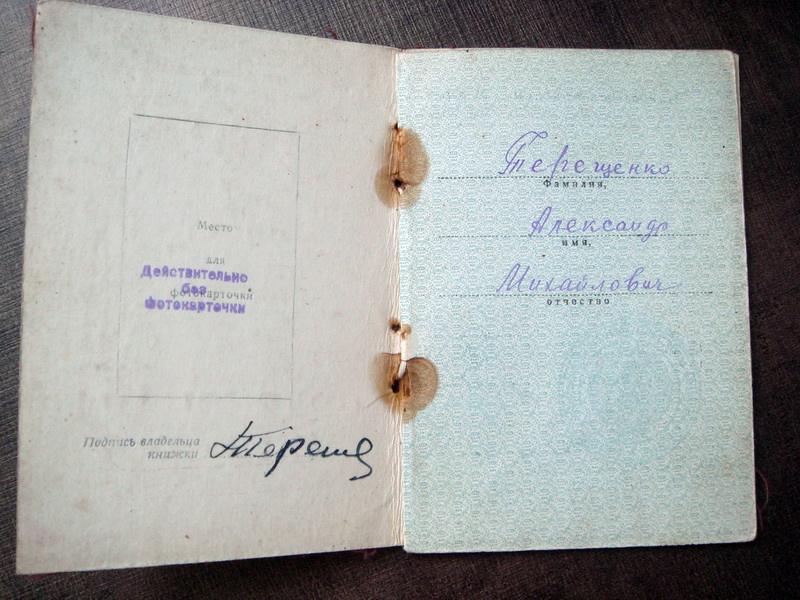 Место
для
фотокарточки
Действительно
без
фотокарточки
Подпись владельца
книжки
Терещенко
Фамилия,
Александр
имя,
Михайлович
отчество